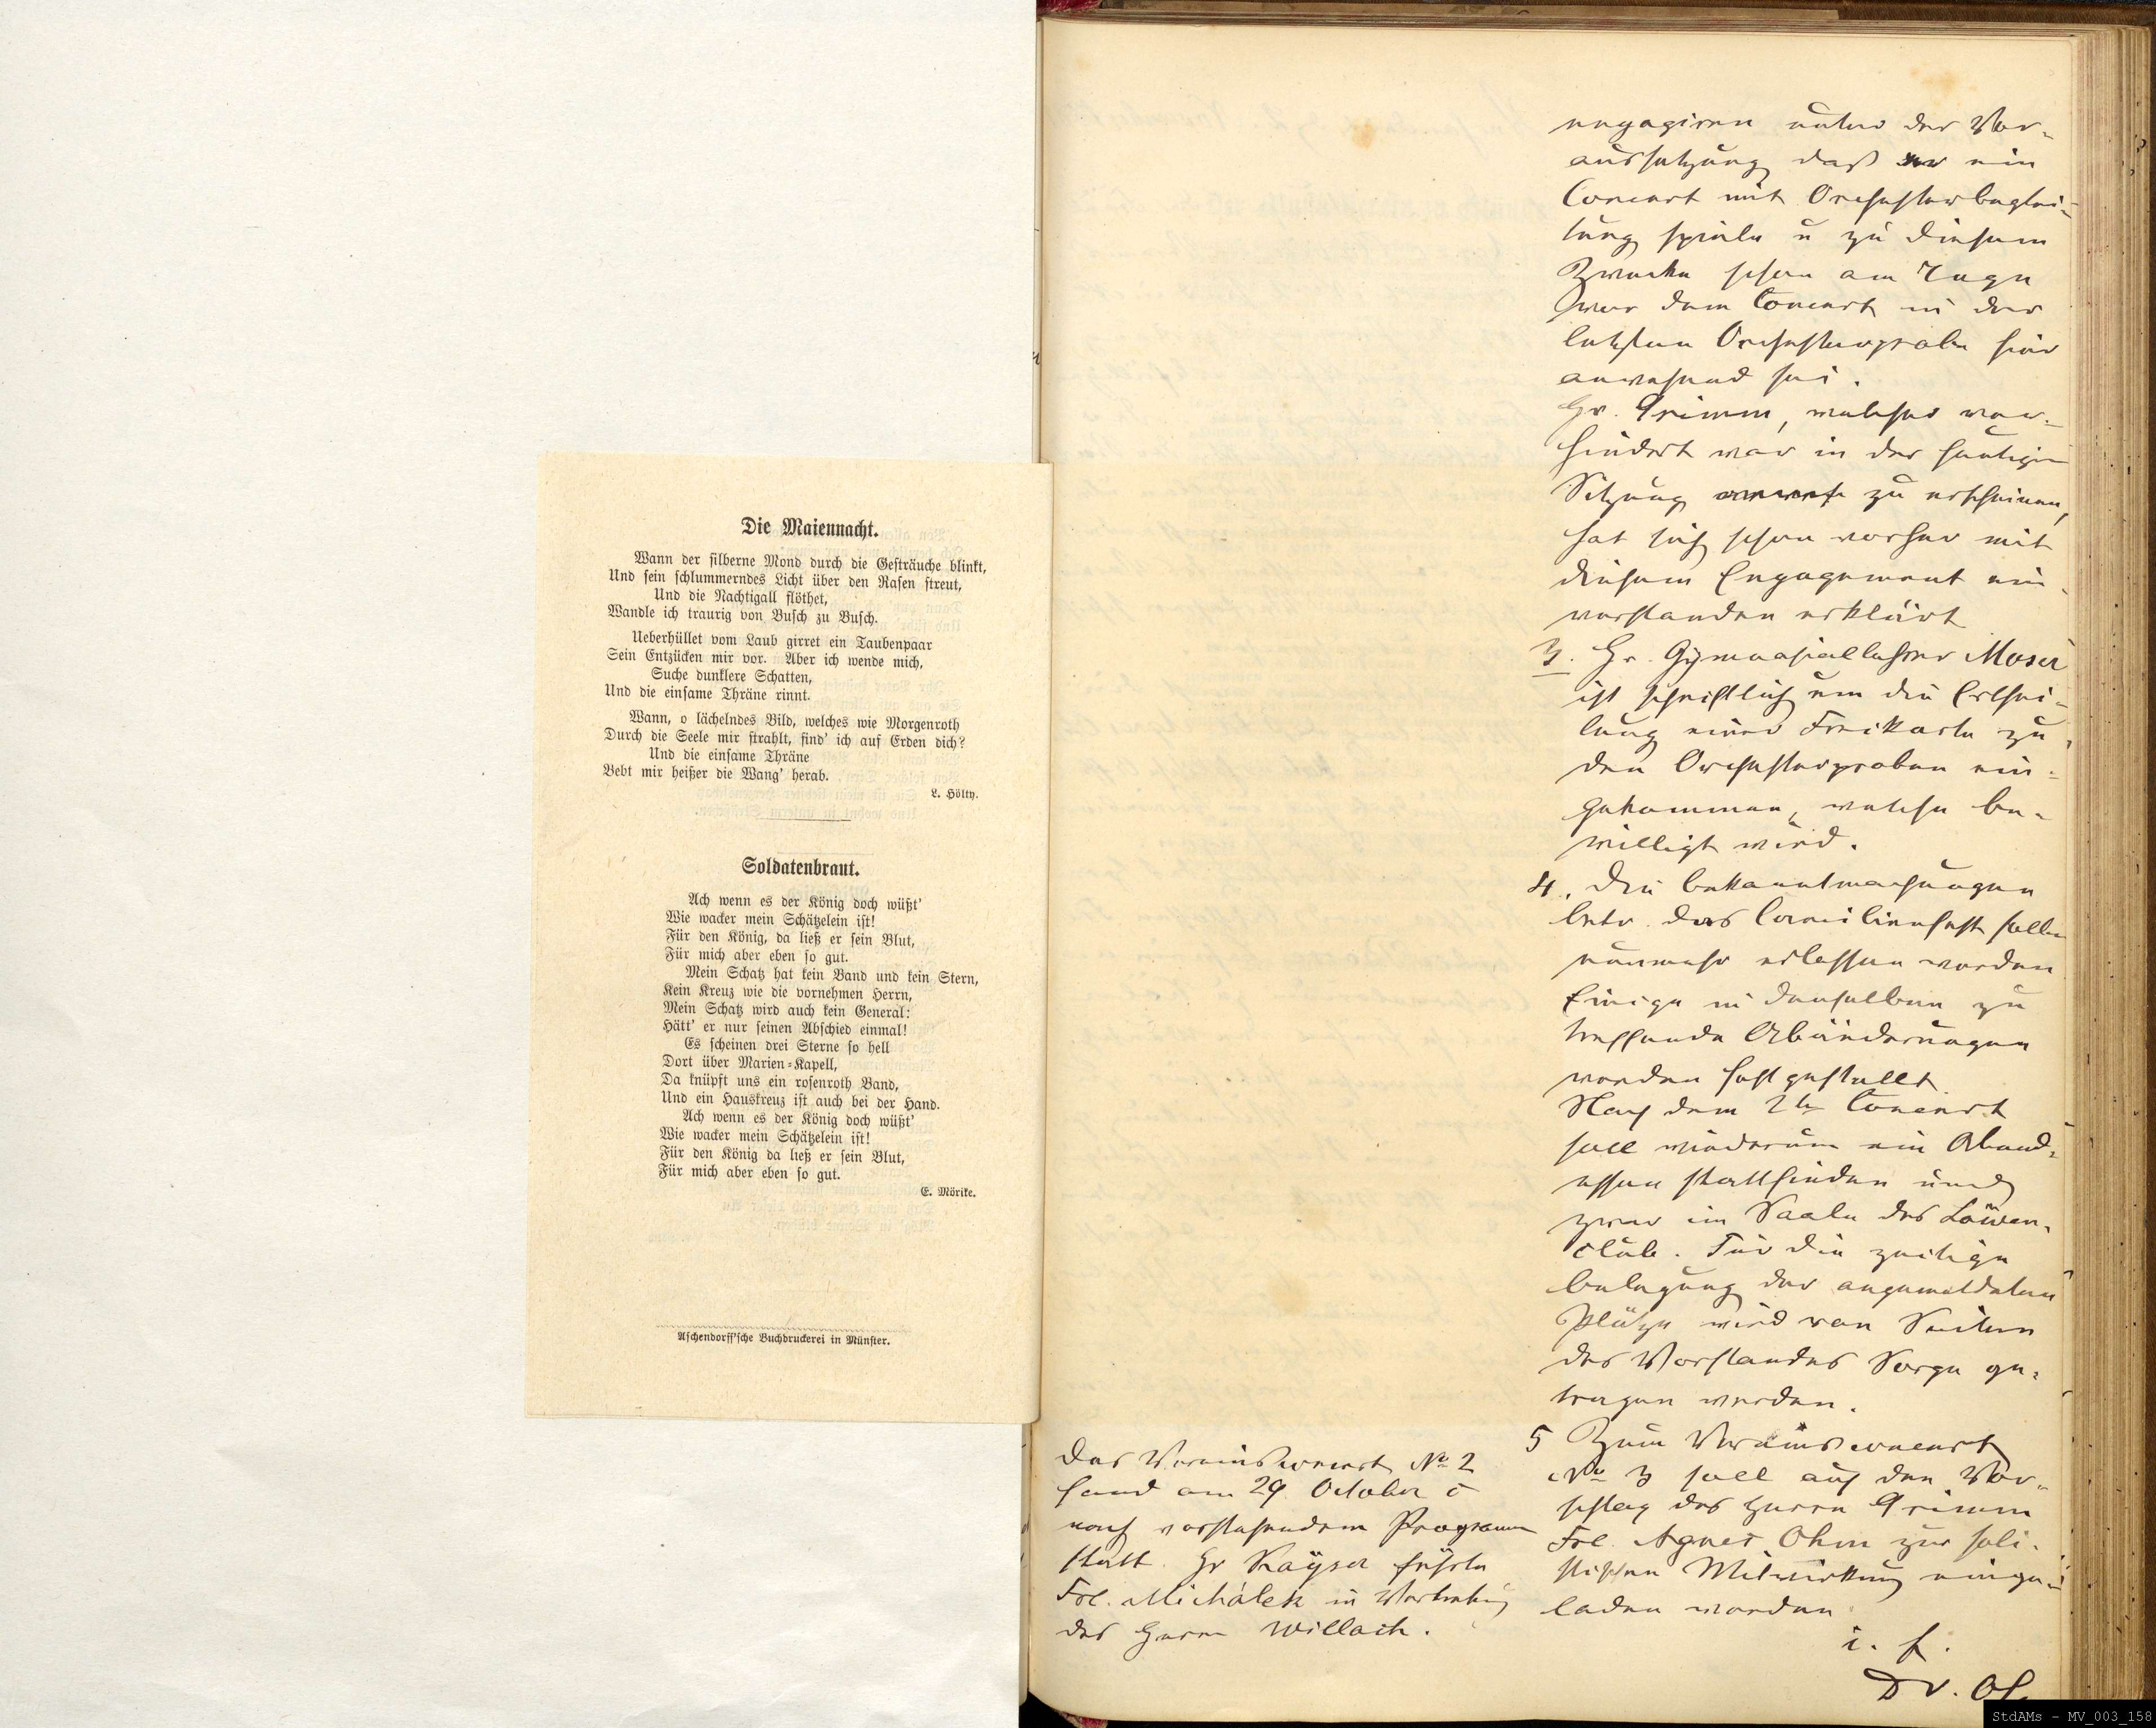 Die Maiennacht.
Wann der silberne Mond durch die Gesträuche blinkt,
Und sein schlummerndes Licht über den Rasen streut,
Und die Nachtigall flöthet,
Wandle ich traurig von Busch zu Busch.
Ueberhüllet vom Laub girret ein Taubenpaar
Sein Entzücken mir vor. Aber ich wende mich,
Suche dunklere Schatten,
Und die einsame Thräne rinnt.
Wann, o lächelndes Bild, welches wie Morgenroth
Durch die Seele mir strahlt, find' ich auf Erden dich?
Und die einsame Thräne
Bebt mir heißer die Wang' herab.
L. Hölty.
Soldatenbraut.
Ach wenn es der König doch wüßt'
Wie wacker mein Schätzelein ist!
Für den König, da ließ er sein Blut,
Für mich aber eben so gut.
Mein Schatz hat kein Band und kein Stern,
Kein Kreuz wie die vornehmen Herrn,
Mein Schatz wird auch kein General:
Hätt' er nur seinen Abschied einmal!
Es scheinen drei Sterne so hell
Dort über Marien-Kapell,
Da knüpft uns ein rosenroth Band,
Und ein Hauskreuz ist auch bei der Hand.
Ach wenn es der König doch wüßt'
Wie wacker mein Schätzelein ist!
Für den König da ließ er sein Blut,
Für mich aber eben so gut.
E. Mörike.
Aschendorff'sche Buchdruckerei in Münster.
Das Vereinsconcert No 2
fand am 29 October c
nach vorstehendem Programm
statt. Hr Kayser führte
Frl. Michálek in Vertretung
des Herrn Willach.
engagiren unter der Vor-
aussetzung daß er ein
Concert mit Orchesterbeglei-
tung spiele u zu diesem
Zwecke schon am Tage
vor dem Concert in der
letzten Orchesterprobe hier
anwesend sei.
Hr. Grimm, welcher ver-
hindert war in der heutigen
Sitzung zu erscheinen,
hat sich schon vorher mit
diesem Engagement ein-
verstanden erklärt
3. Hr. Gymnasiallehrer Moser
ist schriftlich um die Erthei-
lung einer Freikarte zu
den Orchesterproben ein-
gekommen, welche be-
willigt wird.
4. Die Bekanntmachungen
betr. das Cäcilienfest sollen
nunmehr erlassen werden
Einige in denselben zu
treffende Abänderungen
werden festgestellt.
Nach dem 2te Concert
soll wiederum ein Abend-
essen stattfinden und
zwar im Saale des Löwen-
club. Für die zeitige
Belegung der angemeldeten
Plätze wird von Seiten
des Vorstandes Sorge ge-
tragen werden.
5 Zum Vereinsconcert
No 3 soll auf den Vor-
schlag des Herrn Grimm
Frl. Agnes Ohm zur soli-
stischen Mitwirkung einge-
laden werden
i. f.
Dr. Oh
StdAMs - MV_003_158